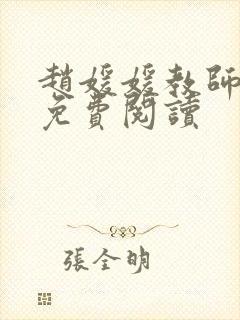 趙媛媛教師
免費閱讀
張全明